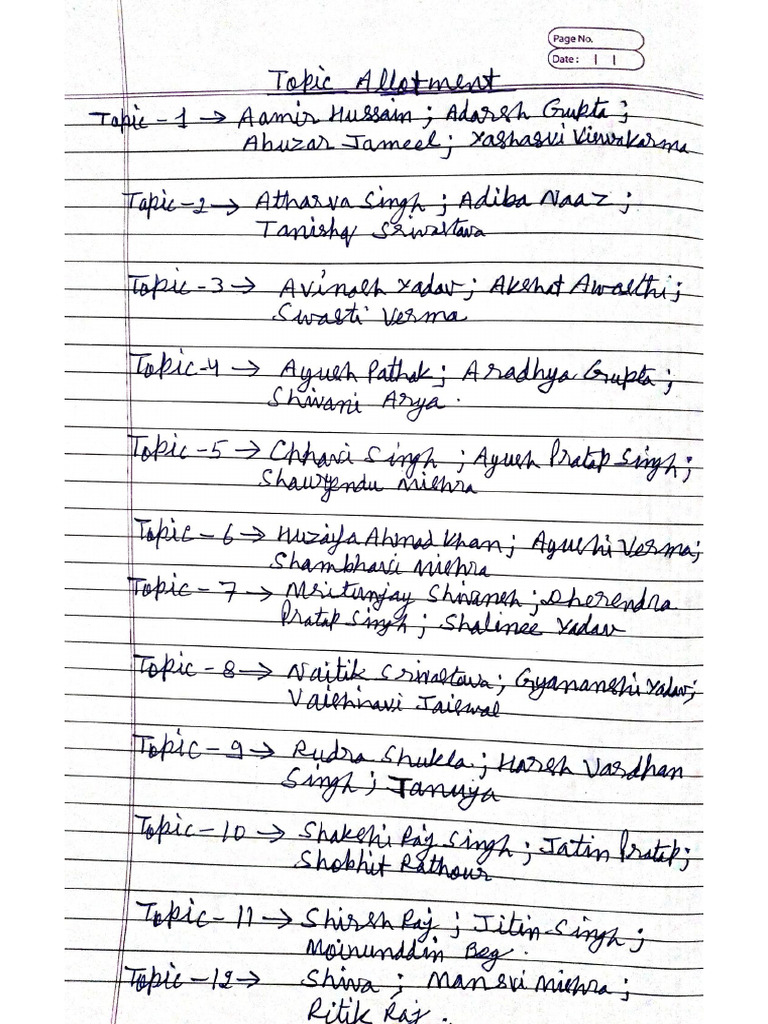 Page No.
Date:
Topic Allotment
Topic-1 → Aamir Hussain; Adarsh Gupta;
Abuzar Jameel; Yashasvi Viswakarma
Topic-2 → Atharva Singh; Adiba Naaz;
Tanishq Srivastava
Topic-3 → Avinash Yadav; Akshat Awasthi;
Swasti Verma
Topic-4 → Ayush Pathak; Aradhya Gupta;
Shivani Arya.
Topic-5 → Chhavi Singh; Ayush Pratap Singh;
Shauryendu Mishra
Topic-6 → Huzaifa Ahmad Khan; Ayushi Verma;
Shambhavi Mishra
Topic-7 → Mritunjay Shivansh; Dherendra
Pratap Singh; Shalinee Yadav
Topic-8 → Naitik Srivastava; Gyananshi Yadav;
Vaishnavi Jaiswal
Topic-9 → Rudra Shukla; Harsh Vardhan
Singh; Tanuja
Topic-10 → Shakshi Raj Singh; Jatin Pratap;
Shobhit Rathour
Topic-11 → Shirsh Raj; Jitin Singh;
Moinunddin Beg.
Topic-12 → Shiva; Mansvi Mishra;
Ritik Raj.